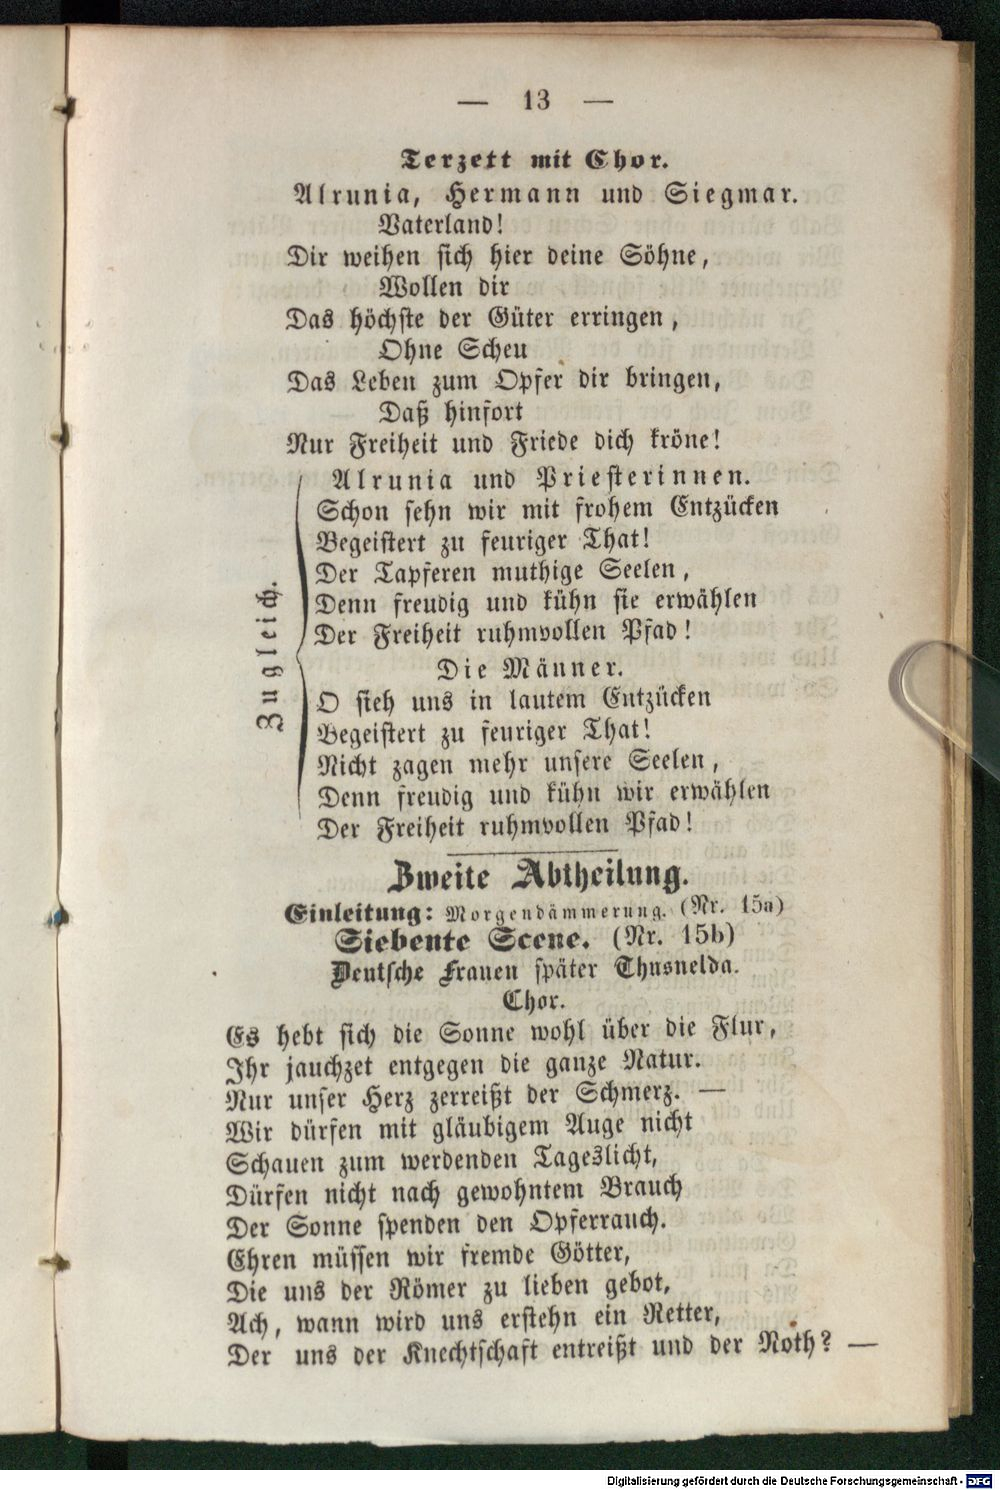 — 13 —
Terzett mit Chor.
Alrunia, Hermann und Siegmar.
Vaterland!
Dir weihen sich hier deine Söhne,
Wollen dir
Das höchste der Güter erringen,
Ohne Scheu
Das Leben zum Opfer dir bringen,
Daß hinfort
Nur Freiheit und Friede dich kröne!
Zugleich.
Alrunia und Priesterinnen.
Schon sehn wir mit frohem Entzücken
Begeistert zu feuriger That!
Der Tapferen muthige Seelen,
Denn freudig und kühn sie erwählen
Der Freiheit ruhmvollen Pfad!
Die Männer.
O sieh uns in lautem Entzücken
Begeistert zu feuriger That!
Nicht zagen mehr unsere Seelen,
Denn freudig und kühn wir erwählen
Der Freiheit ruhmvollen Pfad!
Zweite Abtheilung.
Einleitung: Morgendämmerung. (Nr. 15a)
Siebente Scene. (Nr. 15b)
Deutsche Frauen später Thusnelda.
Chor.
Es hebt sich die Sonne wohl über die Flur,
Ihr jauchzet entgegen die ganze Natur.
Nur unser Herz zerreißt der Schmerz. —
Wir dürfen mit gläubigem Auge nicht
Schauen zum werdenden Tageslicht,
Dürfen nicht nach gewohntem Brauch
Der Sonne spenden den Opferrauch.
Ehren müssen wir fremde Götter,
Die uns der Römer zu lieben gebot,
Ach, wann wird uns erstehn ein Retter,
Der uns der Knechtschaft entreißt und der Noth? —
Digitalisierung gefördert durch die Deutsche Forschungsgemeinschaft - DFG